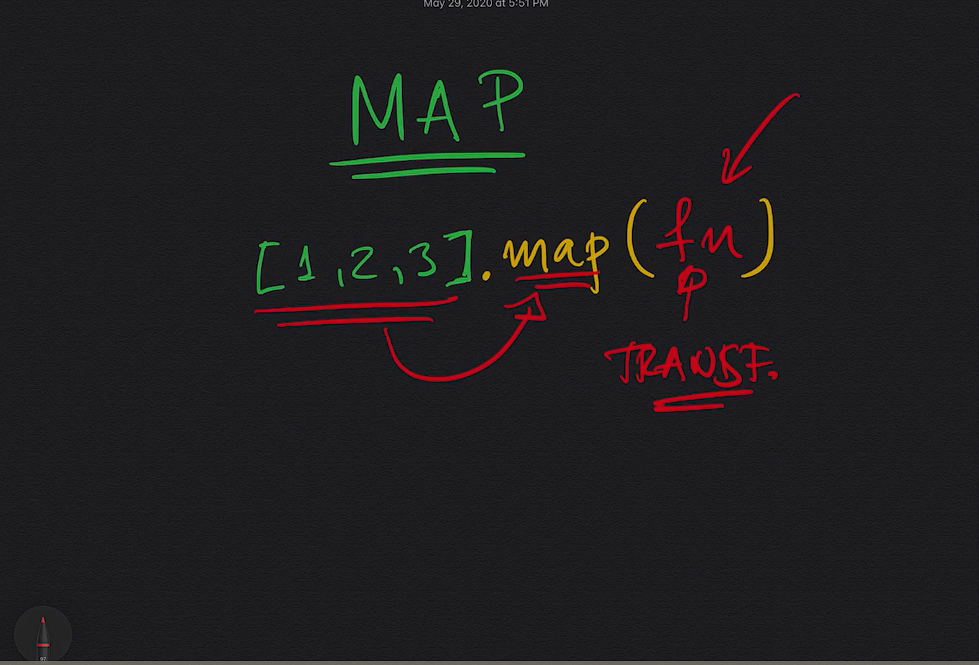 May 29, 2020 at 5:51 PM
MAP
[1,2,3].map(fn)
TRANSF.
97